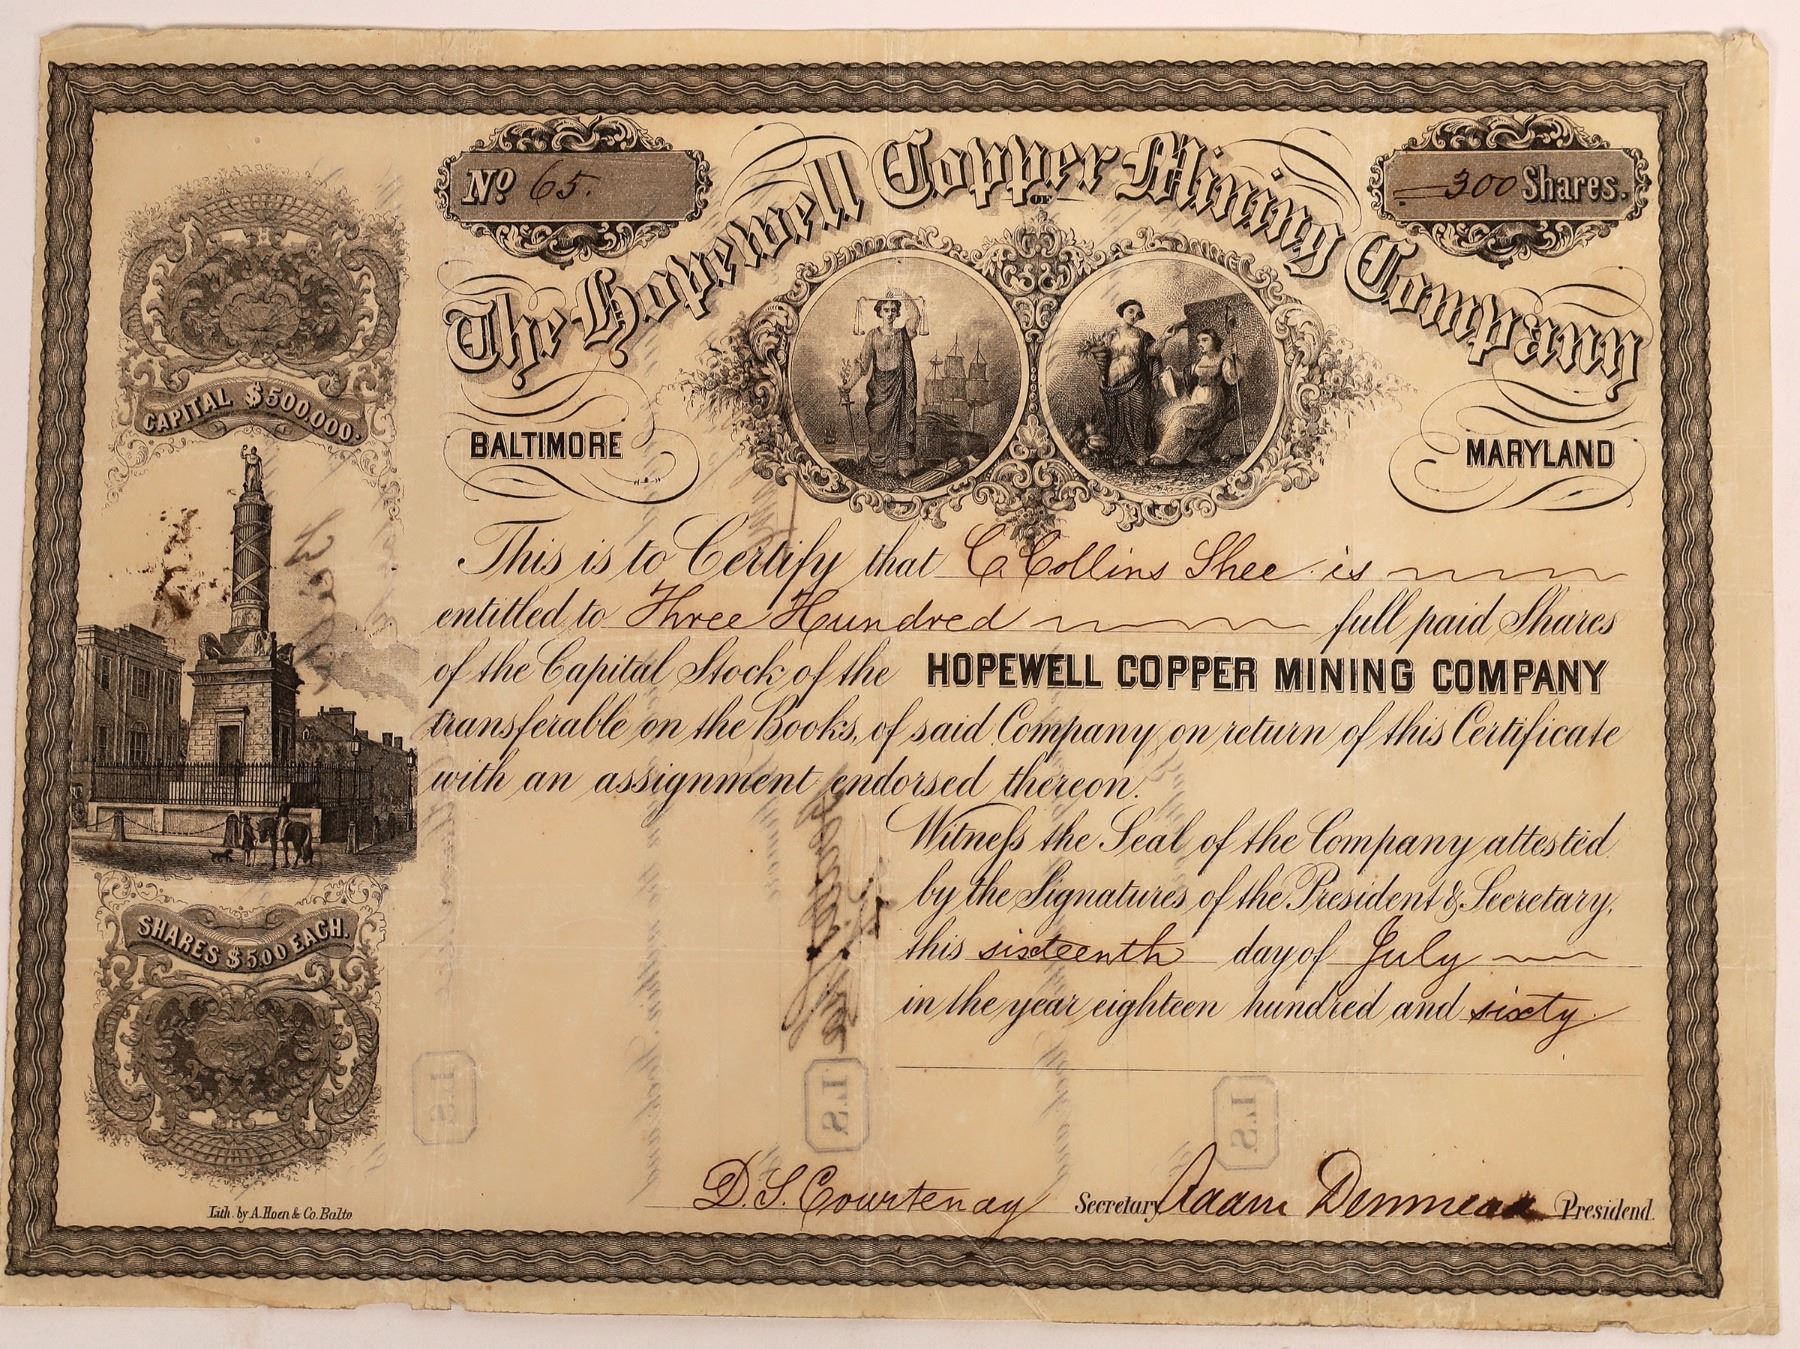 No 65.
300 Shares.
The Hopewell Copper Mining Company
OF
BALTIMORE
MARYLAND
CAPITAL $500,000.
This is to Certify that C. Collins Shee is
entitled to Three Hundred full paid Shares
of the Capital Stock of the HOPEWELL COPPER MINING COMPANY
transferable on the Books, of said Company on return of this Certificate
with an assignment endorsed thereon.
Witness the Seal of the Company attested
by the Signatures of the President & Secretary,
this sixteenth day of July
in the year eighteen hundred and sixty.
SHARES $5.00 EACH.
D. S. Courtenay Secretary Adam Denmead Presidend.
Lith. by A. Hoen & Co. Balto
L.S.
L.S.
L.S.